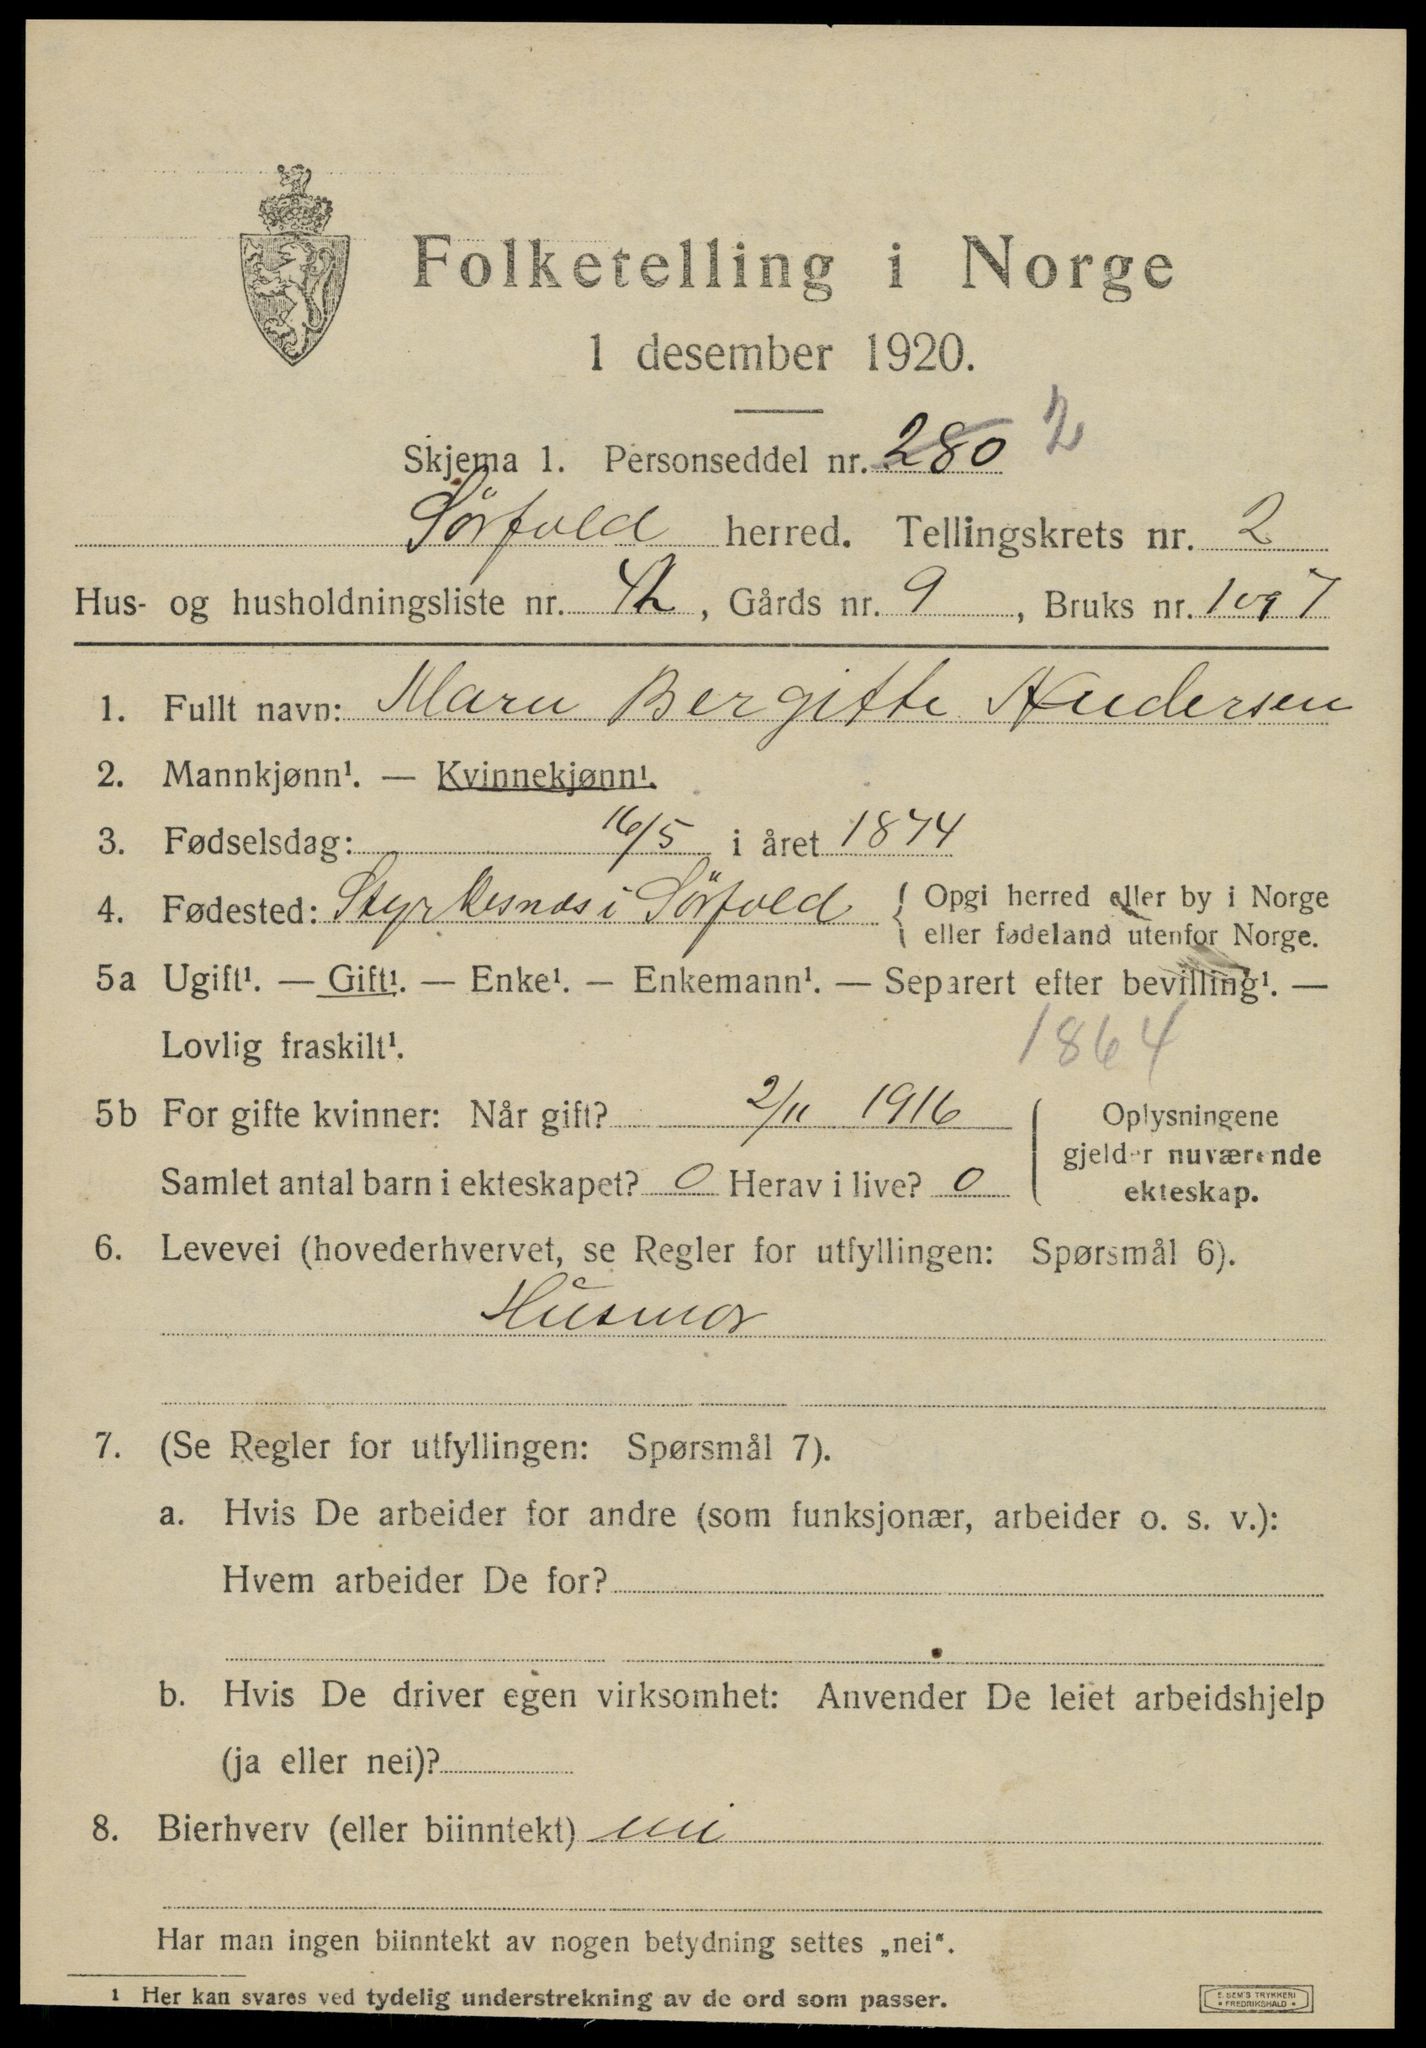 Folketelling i Norge
1 desember 1920.
Skjema 1. Personseddel nr. 280 2
Sörfold herred. Tellingskrets nr. 2
Hus- og husholdningsliste nr. 42, Gårds nr. 9, Bruks nr. 1 og 7
1. Fullt navn: Bergitte Andersen
2. Mannkjønn¹. — Kvinnekjønn¹.
3. Fødselsdag: 16/5 i året 1874
4. Fødested: Styrkesnæs i Sörfold { Opgi herred eller by i Norge
eller fødeland utenfor Norge.
5a Ugift¹. — Gift¹. — Enke¹. — Enkemann¹. — Separert efter bevilling¹. —
Lovlig fraskilt¹. 1864
5b For gifte kvinner: Når gift? 2/11 1916 Oplysningene
gjelder nuværende
Samlet antal barn i ekteskapet? 0 Herav i live? 0 ekteskap.
6. Levevei (hovederhvervet, se Regler for utfyllingen: Spørsmål 6).
Husmor
7. (Se Regler for utfyllingen: Spørsmål 7).
a. Hvis De arbeider for andre (som funksjonær, arbeider o. s. v.):
Hvem arbeider De for?
b. Hvis De driver egen virksomhet: Anvender De leiet arbeidshjelp
(ja eller nei)?
8. Bierhverv (eller biinntekt) nei
Har man ingen biinntekt av nogen betydning settes „nei“.
¹ Her kan svares ved tydelig understrekning av de ord som passer.
E. SEM'S TRYKKERI
• FREDRIKSHALD •